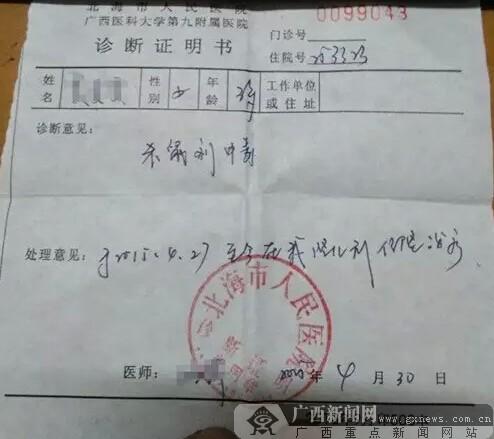 北海市人民医院
广西医科大学第九附属医院
0099043
诊断证明书
门诊号
住院号 253323
姓名 性别 女 年龄 工作单位或住址
诊断意见：
杀鼠剂中毒
处理意见：于2015.4.27至今在我 住院治疗
北海市人民医院
医师： 2015年4月30日
广西新闻网
广西重点新闻网站
www.gxnews.com.cn